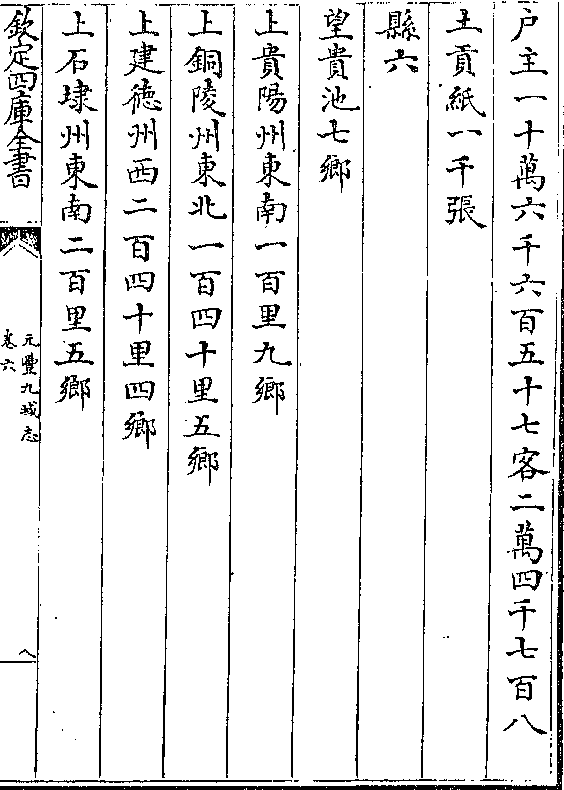 户主一十萬六千六百五十七客二萬四千七百八
土貢紙一千張
縣六
望貴池七鄉
上貴陽州東南一百里九鄉
上銅陵州東北一百四十里五鄉
上建徳州西二百四十里四鄉
上石埭州東南二百里五鄉
欽定四庫全書
元豐九域志
卷六
八